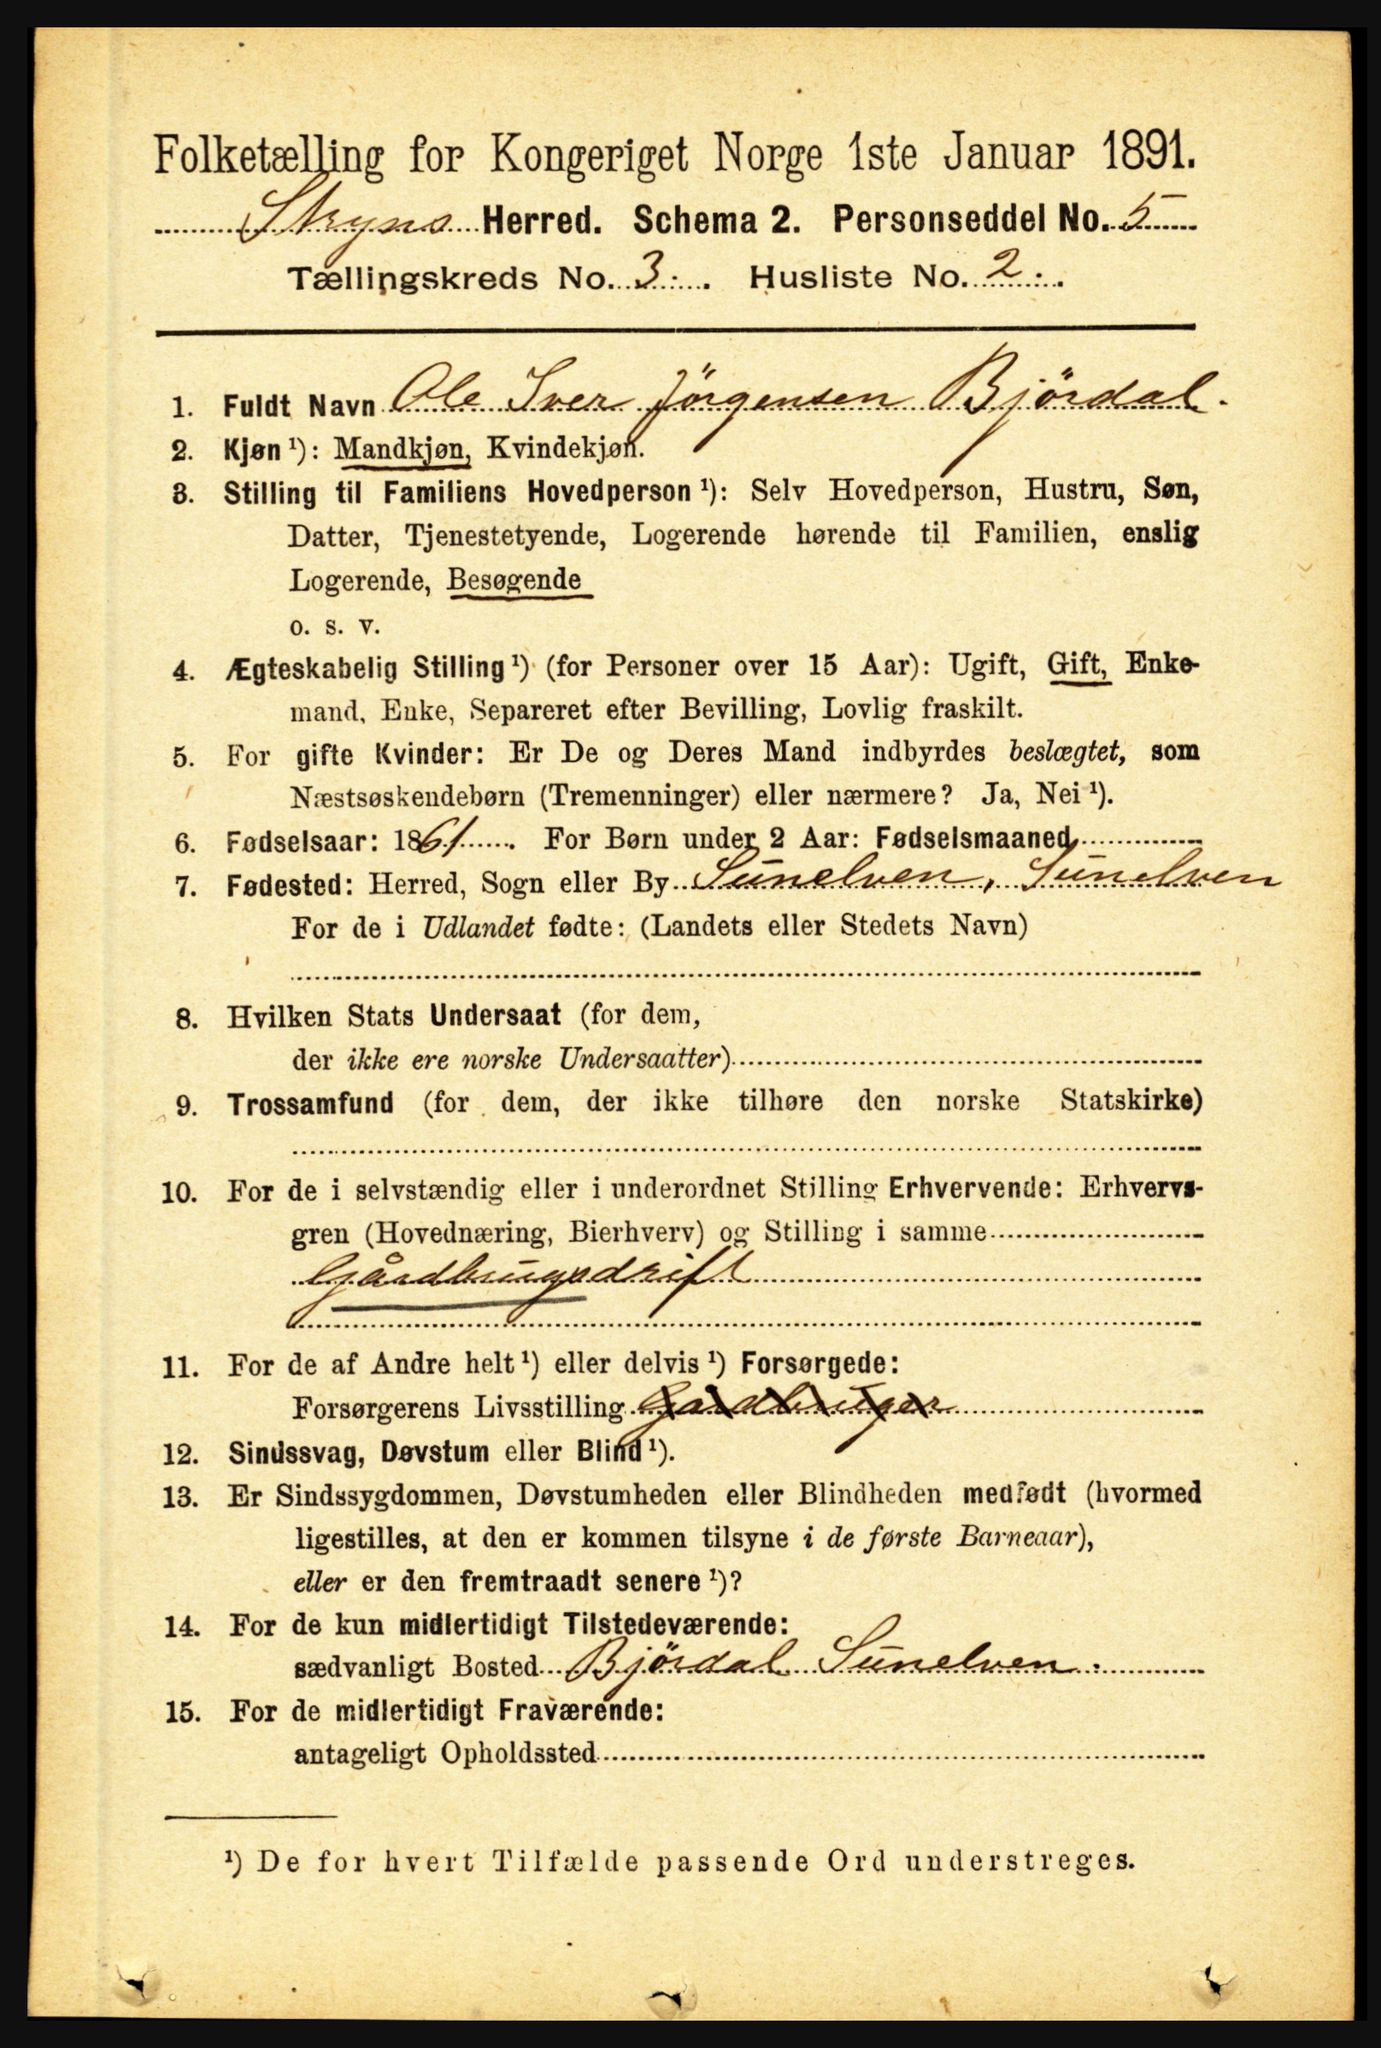 Folketælling for Kongeriget Norge 1ste Januar 1891.
Stryns Herred. Schema 2. Personseddel No. 5
Tællingskreds No. 3. Husliste No. 2.
1. Fuldt Navn Ole Iver Jörgensen Björdal.
2. Kjøn ¹): Mandkjøn, Kvindekjøn.
3. Stilling til Familiens Hovedperson ¹): Selv Hovedperson, Hustru, Søn,
Datter, Tjenestetyende, Logerende hørende til Familien, enslig
Logerende, Besøgende
o. s. v.
4. Ægteskabelig Stilling ¹) (for Personer over 15 Aar): Ugift, Gift, Enke-
mand, Enke, Separeret efter Bevilling, Lovlig fraskilt.
5. For gifte Kvinder: Er De og Deres Mand indbyrdes beslægtet, som
Næstsøskendebørn (Tremenninger) eller nærmere? Ja, Nei ¹).
6. Fødselsaar: 1861. For Børn under 2 Aar: Fødselsmaaned
7. Fødested: Herred, Sogn eller By Sunelven, Sunelven
For de i Udlandet fødte: (Landets eller Stedets Navn)
8. Hvilken Stats Undersaat (for dem,
der ikke ere norske Undersaatter)
9. Trossamfund (for dem, der ikke tilhøre den norske Statskirke)
10. For de i selvstændig eller i underordnet Stilling Erhvervende: Erhvervs-
gren (Hovednæring, Bierhverv) og Stilling i samme
Gårdbrugsdrift
11. For de af Andre helt ¹) eller delvis ¹) Forsørgede:
Forsørgerens Livsstilling Gårdbruger
12. Sindssvag, Døvstum eller Blind ¹).
13. Er Sindssygdommen, Døvstumheden eller Blindheden medfødt (hvormed
ligestilles, at den er kommen tilsyne i de første Barneaar),
eller er den fremtraadt senere ¹)?
14. For de kun midlertidigt Tilstedeværende:
sædvanligt Bosted Björdal Sunelven.
15. For de midlertidigt Fraværende:
antageligt Opholdssted
¹) De for hvert Tilfælde passende Ord understreges.